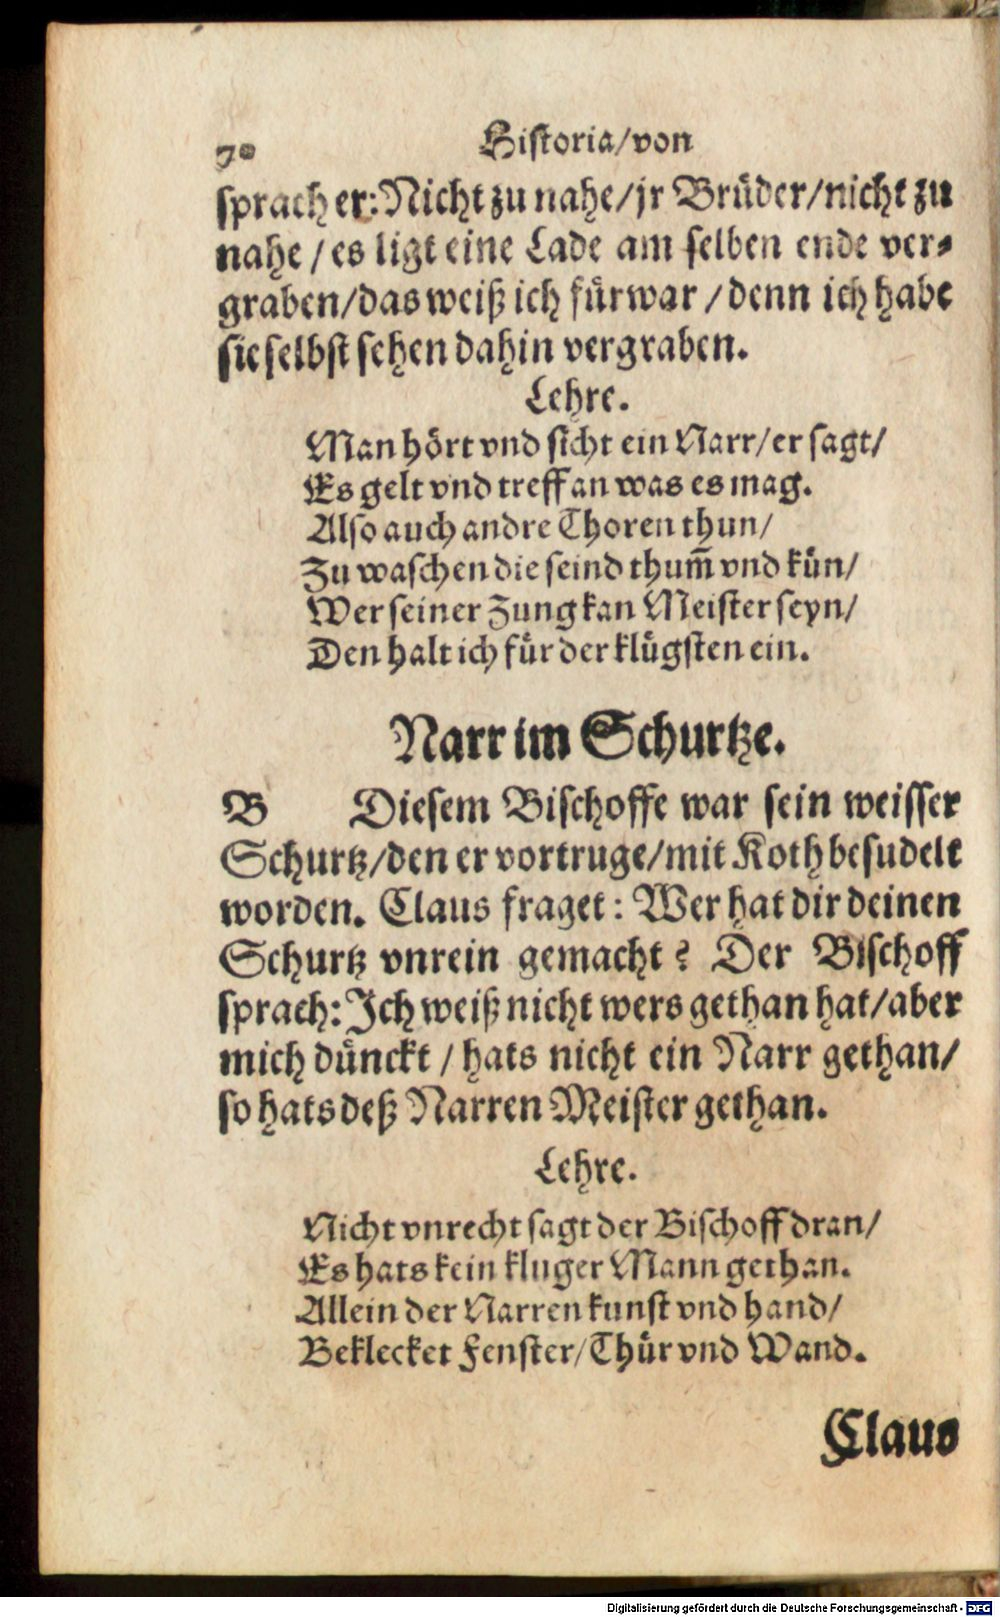 70 Historia/von
sprach er: Nicht zu nahe/jr Brüder/nicht zu
nahe / es ligt eine Lade am selben ende ver⸗
graben/das weiß ich fürwar / denn ich habe
sie selbst sehen dahin vergraben.
Lehre.
Man hört vnd sicht ein Narr/er sagt/
Es gelt vnd treff an was es mag.
Also auch andre Thoren thun/
Zu waschen die seind thum̄ vnd kün/
Wer seiner Zung kan Meister seyn/
Den halt ich für der klügsten ein.
Narr im Schurtze.
B Diesem Bischoffe war sein weisser
Schurtz/den er vortruge/mit Koth besudelt
worden. Claus fraget: Wer hat dir deinen
Schurtz vnrein gemacht? Der Bischoff
sprach: Ich weiß nicht wers gethan hat/aber
mich dünckt / hats nicht ein Narr gethan/
so hats deß Narren Meister gethan.
Lehre.
Nicht vnrecht sagt der Bischoff dran/
Es hats kein kluger Mann gethan.
Allein der Narren kunst vnd hand/
Beklecket Fenster/Thür vnd Wand.
Claus
Digitalisierung gefördert durch die Deutsche Forschungsgemeinschaft - DFG